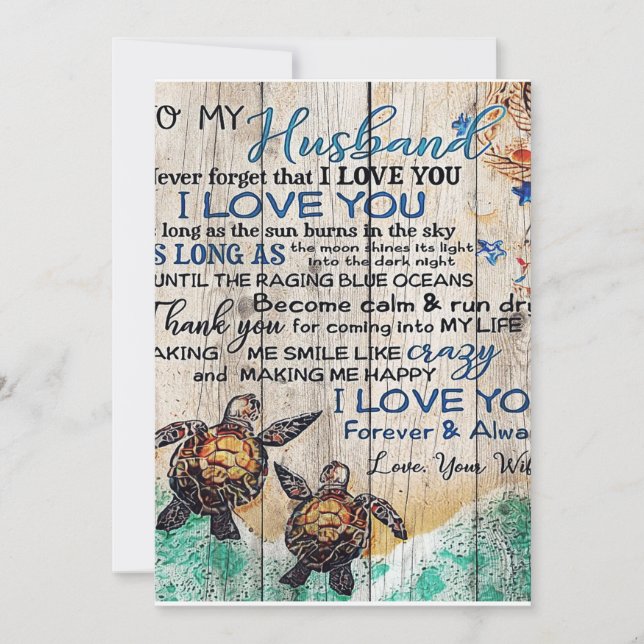 O MY Husband
ever forget that I LOVE YOU
I LOVE YOU
long as the sun burns in the sky
S LONG AS the moon shines its light
into the dark night
UNTIL THE RAGING BLUE OCEANS
Become calm & run dry
Thank you for coming into MY LIFE
AKING ME SMILE LIKE crazy
and MAKING ME HAPPY
I LOVE YO
Forever & Alwa
Love, Your Wif